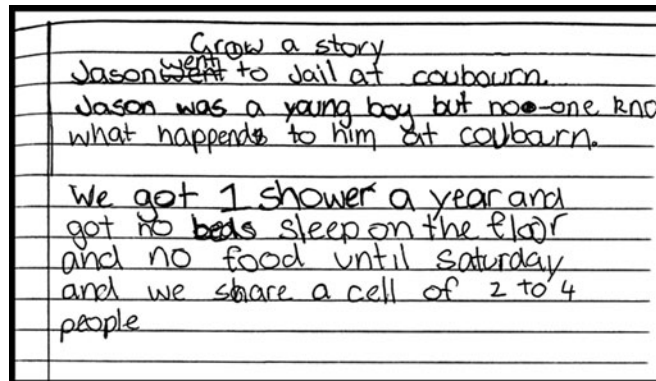 Grow a story
Jason went to Jail at coubourn.
Jason was a young boy but no-one kno
what happends to him at coubourn.
We got 1 shower a year and
got no beds sleep on the floor
and no food until saturday
and we share a cell of 2 to 4
people